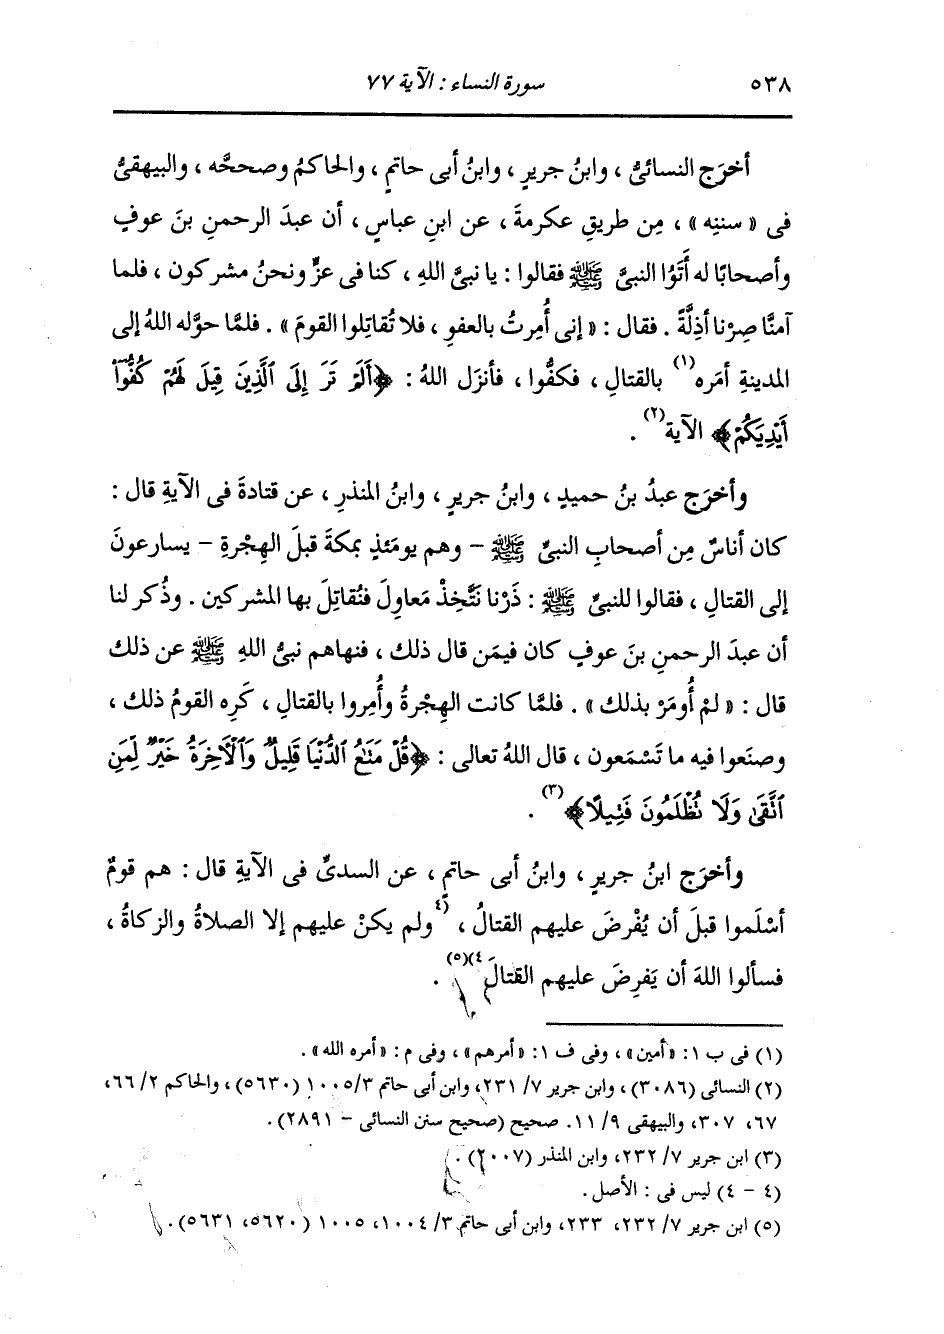 ٥٣٨ سورة النساء : الآية ٧٧
أخرَج النسائىُّ ، وابنُ جريرٍ ، وابنُ أبى حاتمٍ ، والحاكمُ وصححَّه ، والبيهقىُّ
فى « سننِه » ، مِن طريقِ عكرمةَ ، عن ابنِ عباسٍ ، أن عبدَ الرحمنِ بنَ عوفٍ
وأصحابًا له أَتَوُا النبىَّ ﷺ فقالوا : يا نبىَّ اللهِ ، كنا فى عزٍّ ونحنُ مشركون ، فلما
آمنَّا صِرْنا أذِلَّةً . فقال : « إنى أُمِرتُ بالعفوِ ، فلا تُقاتِلوا القومَ » . فلمَّا حوَّله اللهُ إلى
المدينةِ أمَره(١) بالقتالِ ، فكفُّوا ، فأنزَل اللهُ : ﴿أَلَمْ تَرَ إِلَى ٱلَّذِينَ قِيلَ لَهُمْ كُفُّوٓا۟
أَيْدِيَكُمْ﴾ الآية(٢) .
وأخرَج عبدُ بنُ حميدٍ ، وابنُ جريرٍ ، وابنُ المنذرِ ، عن قتادةَ فى الآيةِ قال :
كان أناسٌ مِن أصحابِ النبىِّ ﷺ - وهم يومَئذٍ بمكةَ قبلَ الهِجْرةِ - يسارعونَ
إلى القتالِ ، فقالوا للنبىِّ ﷺ : ذَرْنا نَتَّخِذْ مَعاوِلَ فنُقاتِلَ بها المشركين . وذُكر لنا
أن عبدَ الرحمنِ بنَ عوفٍ كان فيمَن قال ذلك ، فنهاهم نبىُّ اللهِ ﷺ عن ذلك
قال : « لمْ أُومَرْ بذلك » . فلمَّا كانت الهِجْرةُ وأُمِروا بالقتالِ ، كَرِه القومُ ذلك ،
وصنَعوا فيه ما تَسْمَعون ، قال اللهُ تعالى : ﴿قُلْ مَتَٰعُ ٱلدُّنْيَا قَلِيلٌ وَٱلْءَاخِرَةُ خَيْرٌ لِّمَنِ
ٱتَّقَىٰ وَلَا تُظْلَمُونَ فَتِيلًا﴾(٣) .
وأخرَج ابنُ جريرٍ ، وابنُ أبى حاتمٍ ، عن السدىِّ فى الآيةِ قال : هم قومٌ
أسْلَموا قبلَ أن يُفْرضَ عليهم القتالُ ، (٤ولم يكنْ عليهم إلا الصلاةُ والزكاةُ ،
فسألوا اللهَ أن يَفرِضَ عليهم القتالَ٤)(٥) .
(١) فى ب ١: «أمين» ، وفى ف ١: «أمرهم» ، وفى م : «أمره الله» .
(٢) النسائى (٣٠٨٦) ، وابن جرير ٧/ ٢٣١، وابن أبى حاتم ٣/ ١٠٠٥ (٥٦٣٠) ، والحاكم ٢/ ٦٦،
٦٧، ٣٠٧، والبيهقى ٩/ ١١. صحيح (صحيح سنن النسائى - ٢٨٩١) .
(٣) ابن جرير ٧/ ٢٣٢، وابن المنذر (٢٠٠٧) .
(٤ - ٤) ليس فى : الأصل .
(٥) ابن جرير ٧/ ٢٣٢، ٢٣٣، وابن أبى حاتم ٣/ ١٠٠٤، ١٠٠٥ (٥٦٢٠، ٥٦٣١) .